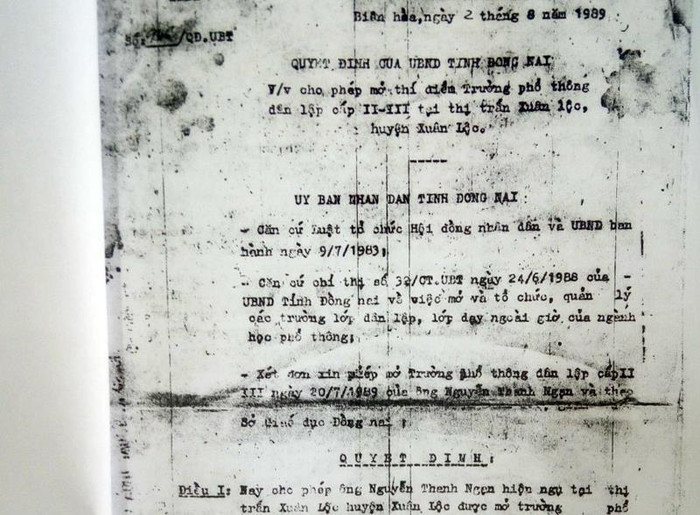 Biên hòa, ngày 2 tháng 8 năm 1989
Số: /QĐ.UBT
QUYẾT ĐỊNH CỦA UBND TỈNH ĐỒNG NAI
V/v cho phép mở thí điểm Trường phổ thông
dân lập cấp II-III tại thị trấn Xuân Lộc,
huyện Xuân Lộc.
-----
UỶ BAN NHÂN DÂN TỈNH ĐỒNG NAI:
- Căn cứ luật tổ chức Hội đồng nhân dân và UBND ban
hành ngày 9/7/1983;
- Căn cứ chỉ thị số 32/CT.UBT ngày 24/6/1988 của
UBND Tỉnh Đồng nai về việc mở và tổ chức, quản lý
các trường lớp dân lập, lớp dạy ngoài giờ của ngành
học phổ thông;
- Xét đơn xin phép mở Trường phổ thông dân lập cấpII
III ngày 20/7/1989 của ông Nguyễn Thanh Ngạn và theo
Sở Giáo dục Đồng nai ;
QUYẾT ĐỊNH:
Điều I: Nay cho phép ông Nguyễn Thanh Ngạn hiện ngụ tại thị
trấn Xuân Lộc huyện Xuân Lộc được mở trường phổ